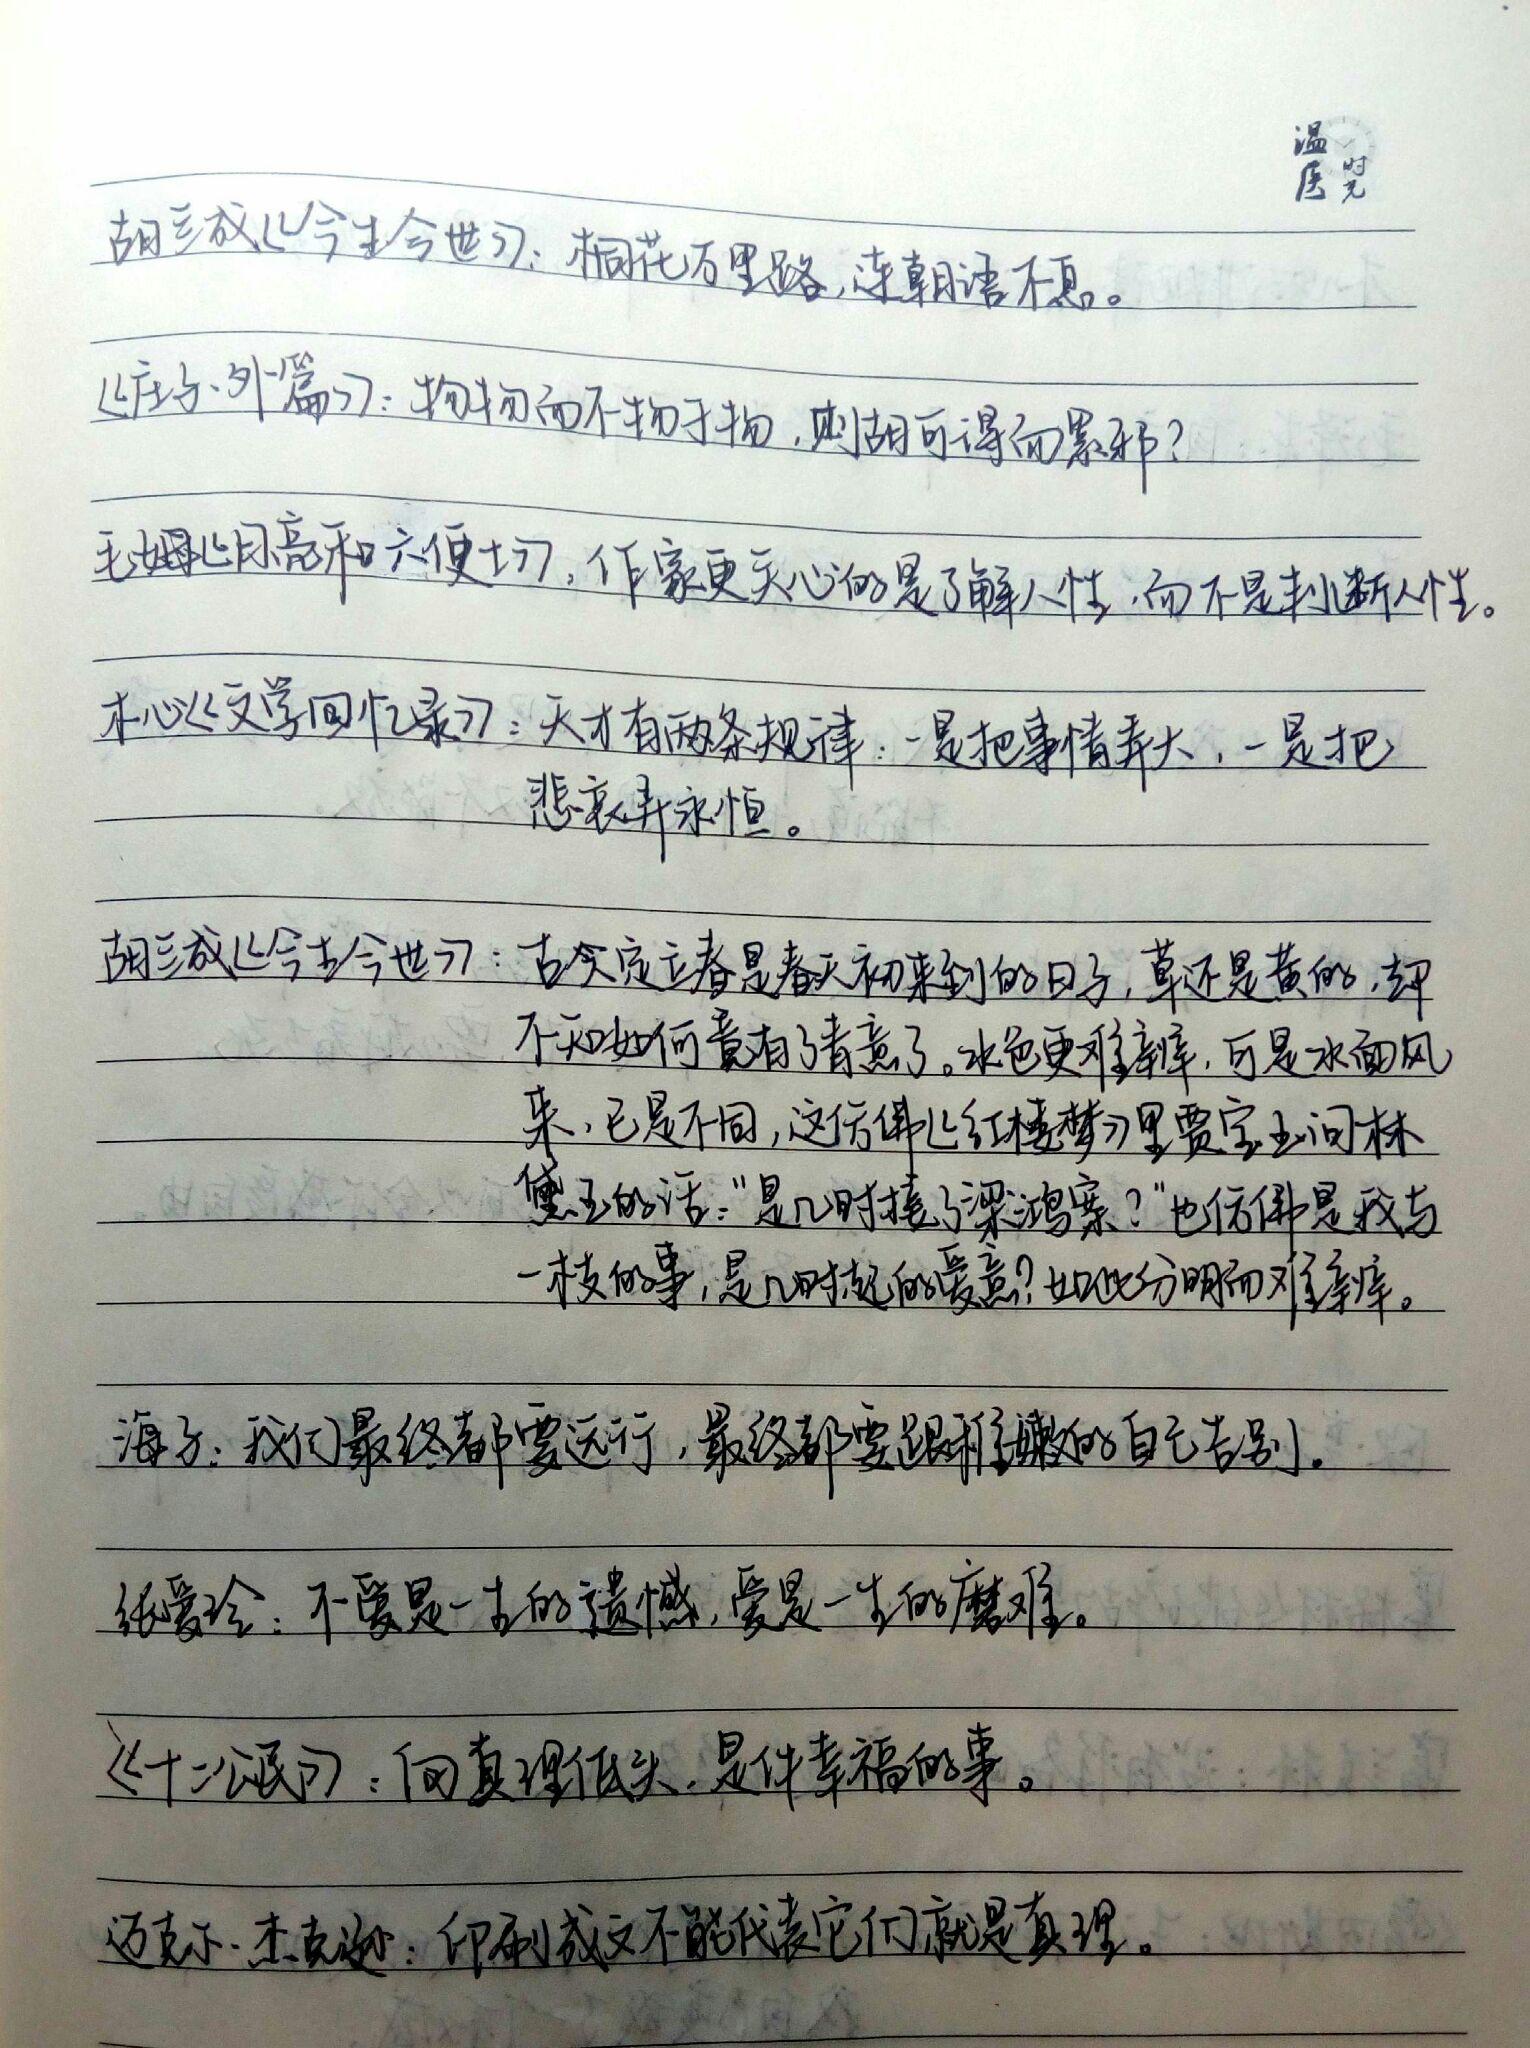 温医时光
胡兰成《今生今世》：桐花万里路，连朝语不息。
《庄子·外篇》：物物而不物于物，则胡可得而累邪？
毛姆《月亮和六便士》，作家更关心的是了解人性，而不是判断人性。
木心《文学回忆录》：天才有两条规律：一是把事情弄大，一是把
悲哀弄永恒。
胡兰成《今生今世》：古今定立春是春天初来到的日子，草还是黄的，却
不知如何竟有了青意了。水色更难辨，可是水面风
来，已是不同，这仿佛《红楼梦》里贾宝玉问林
黛玉的话："是几时接了梁鸿案？"也仿佛是我与
一枝的事，是几时起的爱意？如此分明而难辨。
海子：我们最终都要远行，最终都要跟稚嫩的自己告别。
张爱玲：不爱是一生的遗憾，爱是一生的磨难。
《十二公民》：向真理低头，是件幸福的事。
迈克尔·杰克逊：印刷成文不能代表它们就是真理。